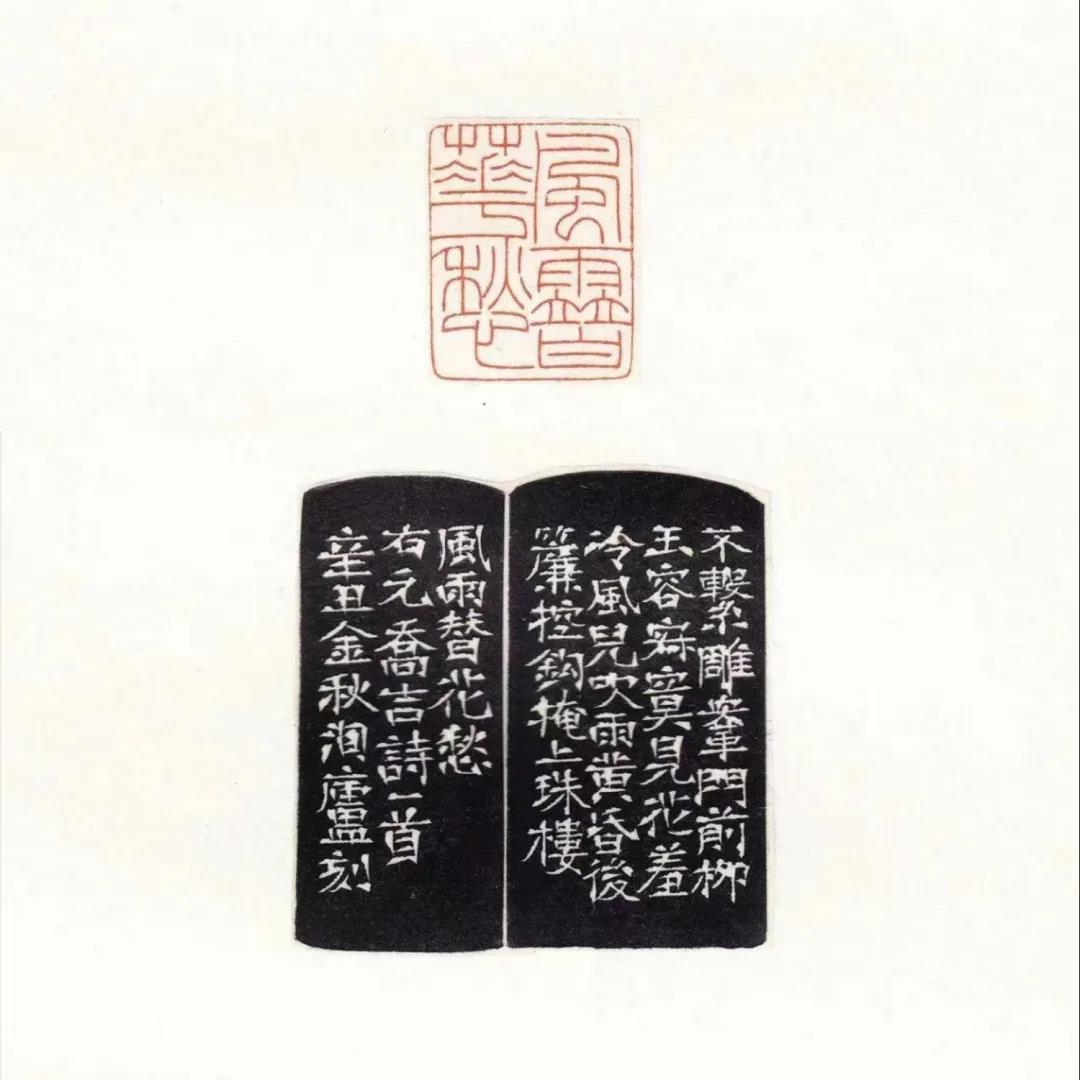 風雨替
華愁
不繫雕鞍門前柳
玉容寂寞見花羞
冷風兒吹雨黄昏後
簾控鈎掩上珠樓
風雨替花愁
右元喬吉詩一首
辛丑金秋廬刻